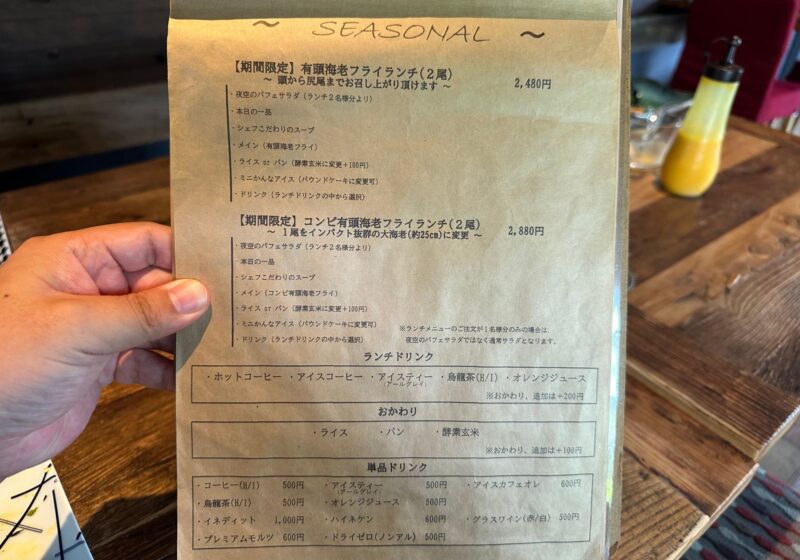 ~ SEASONAL ~
【期間限定】有頭海老フライランチ(２尾)
2,480円
~ 頭から尻尾までお召し上がり頂けます ~
・夜空のパフェサラダ (ランチ２名様分より)
・本日の一品
・シェフこだわりのスープ
・メイン (有頭海老フライ)
・ライス or パン (酵素玄米に変更＋100円)
・ミニかんなアイス (パウンドケーキに変更可)
・ドリンク (ランチドリンクの中から選択)
【期間限定】コンビ有頭海老フライランチ(２尾)
2,880円
~ １尾をインパクト抜群の大海老(約25cm)に変更 ~
・夜空のパフェサラダ (ランチ２名様分より)
・本日の一品
・シェフこだわりのスープ
・メイン (コンビ有頭海老フライ)
・ライス or パン (酵素玄米に変更＋100円)
・ミニかんなアイス (パウンドケーキに変更可)
・ドリンク (ランチドリンクの中から選択)
※ランチメニューのご注文が１名様分のみの場合は、
夜空のパフェサラダではなく通常サラダとなります。
ランチドリンク
・ホットコーヒー ・アイスコーヒー ・アイスティー ・烏龍茶(H/I) ・オレンジジュース
(アールグレイ)
※おかわり、追加は＋200円
おかわり
・ライス ・パン ・酵素玄米
※おかわり、追加は＋100円
単品ドリンク
・コーヒー(H/I) 500円 ・アイスティー 500円 ・アイスカフェオレ 600円
(アールグレイ)
・烏龍茶(H/I) 500円 ・オレンジジュース 500円
・イネディット 1,000円 ・ハイネケン 600円 ・グラスワイン(赤/白) 500円
・プレミアムモルツ 600円 ・ドライゼロ(ノンアル) 500円